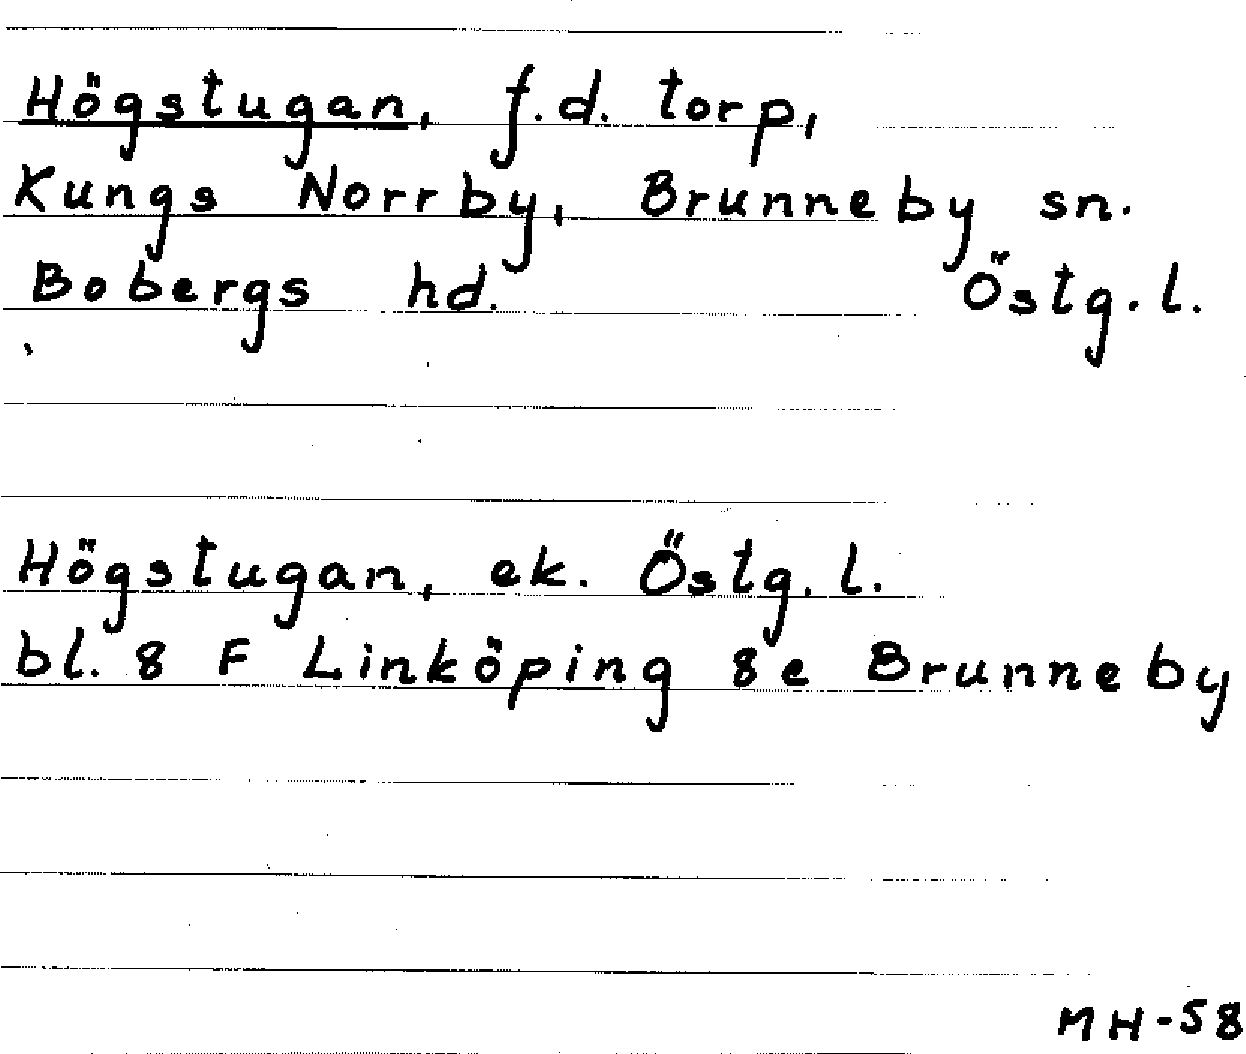 Högstugan, f.d. torp,
Kungs Norrby, Brunneby sn.
Bobergs hd. Östg.l.
Högstugan, ek. Östg.l.
bl. 8 F Linköping 8e Brunneby
MH-58